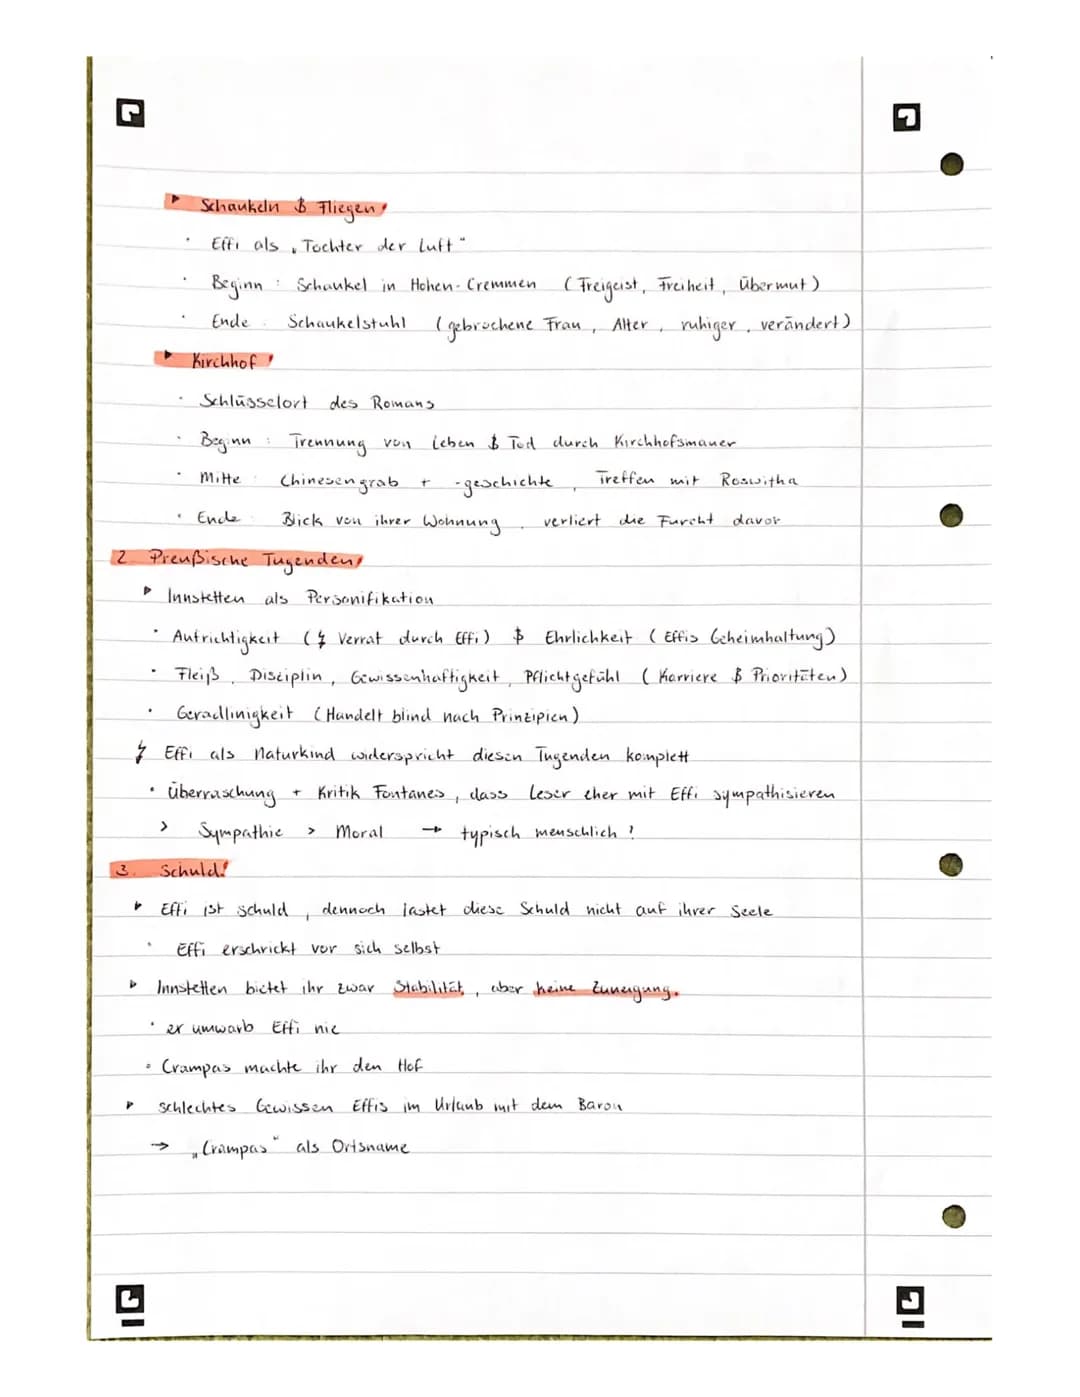 ▸ Schaukeln & Fliegen
· Effi als „Tochter der Luft"
· Beginn : Schaukel in Hohen-Cremmen (Freigeist, Freiheit, Übermut)
· Ende : Schaukelstuhl (gebrochene Frau, Alter, ruhiger, verändert)
▸ Kirchhof
· Schlüsselort des Romans
· Beginn : Trennung von Leben & Tod durch Kirchhofsmauer
· Mitte : Chinesengrab + -geschichte, Treffen mit Roswitha
· Ende : Blick von ihrer Wohnung, verliert die Furcht davor
2. Preußische Tugenden
▸ Innstetten als Personifikation
· Aufrichtigkeit (↯ Verrat durch Effi) & Ehrlichkeit (Effis Geheimhaltung)
· Fleiß, Disziplin, Gewissenhaftigkeit, Pflichtgefühl (Karriere & Prioritäten)
· Geradlinigkeit (Handelt blind nach Prinzipien)
↯ Effi als Naturkind widerspricht diesen Tugenden komplett
· Überraschung + Kritik Fontanes, dass Leser eher mit Effi sympathisieren
> Sympathie > Moral → typisch menschlich?
3. Schuld
▸ Effi ist Schuld, dennoch lastet diese Schuld nicht auf ihrer Seele
· Effi erschrickt vor sich selbst
▸ Innstetten bietet ihr zwar Stabilität, aber keine Zuneigung.
· er umwarb Effi nie
· Crampas machte ihr den Hof
▸ schlechtes Gewissen Effis im Urlaub mit dem Baron
→ „Crampas" als Ortsname